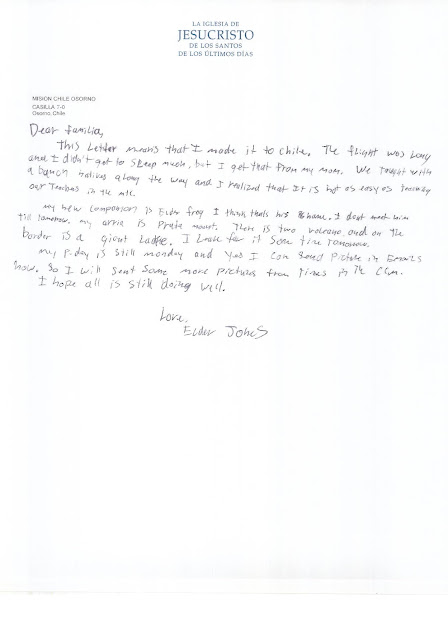 LA IGLESIA DE
JESUCRISTO
DE LOS SANTOS
DE LOS ÚLTIMOS DÍAS
MISION CHILE OSORNO
CASILLA 7-0
Osorno, Chile
Dear familia,
This Letter means that I made it to Chile. The flight was Long
and I didn't get to sleep much, but I get that from my mom. We talked with
a bunch natives along the way and I realized that It is not as easy as
our in the mtc.
my new companion is Elder frey I think thats his name. I dont meet him
till tomorrow. my is mount. There is two volcano, and on the
border is a giant Lake. I for it Some time tomorrow.
my P-day is still monday and yes I can Send Picture in Emails
Now. So I will sent Some more pictures from times in The
I hope all is still doing well.
Love,
Elder Jones